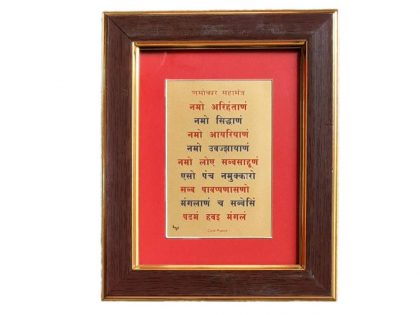 णमोक्कार महामंत्र
नमो अरिहंताणं
नमो सिद्धाणं
नमो आयरियाणं
नमो उवज्झायाणं
नमो लोए सव्वसाहूणं
एसो पंच नमुक्कारो
सव्व पावप्पणासणो
मंगलाणं च सव्वेसिं
पढमं हवइ मंगलं